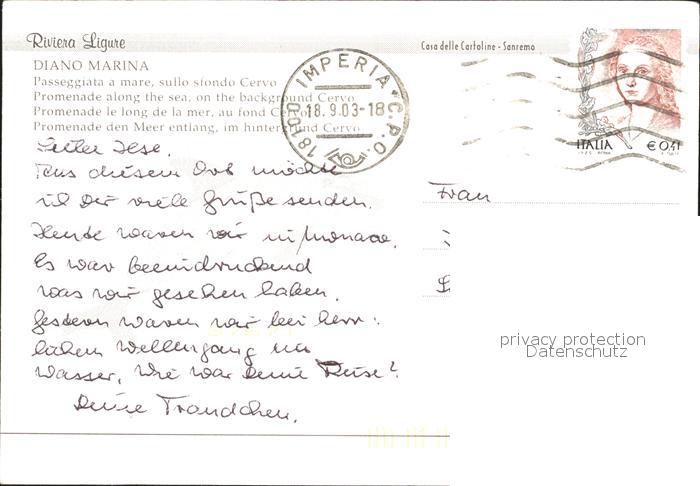 Riviera Ligure
Casa delle Cartoline - Sanremo
DIANO MARINA
Passeggiata a mare, sullo sfondo Cervo
Promenade along the sea, on the background Cervo
Promenade le long de la mer, au fond Cervo
Promenade den Meer entlang, im hintergrund Cervo
IMPERIA * C.P.O.
18.9.03-18
18100
ITALIA € 0,41
Liebe Ilse.
Aus diesem Ort möchte
ich Dir viele Grüße senden.
Heute waren wir in Monaco.
Es war beeindruckend
was wir gesehen haben.
Gestern waren wir bei herr=
lichem Wellengang im
Wasser, Wie war Deine Reise?
Deine Traudchen.
Frau
privacy protection
Datenschutz